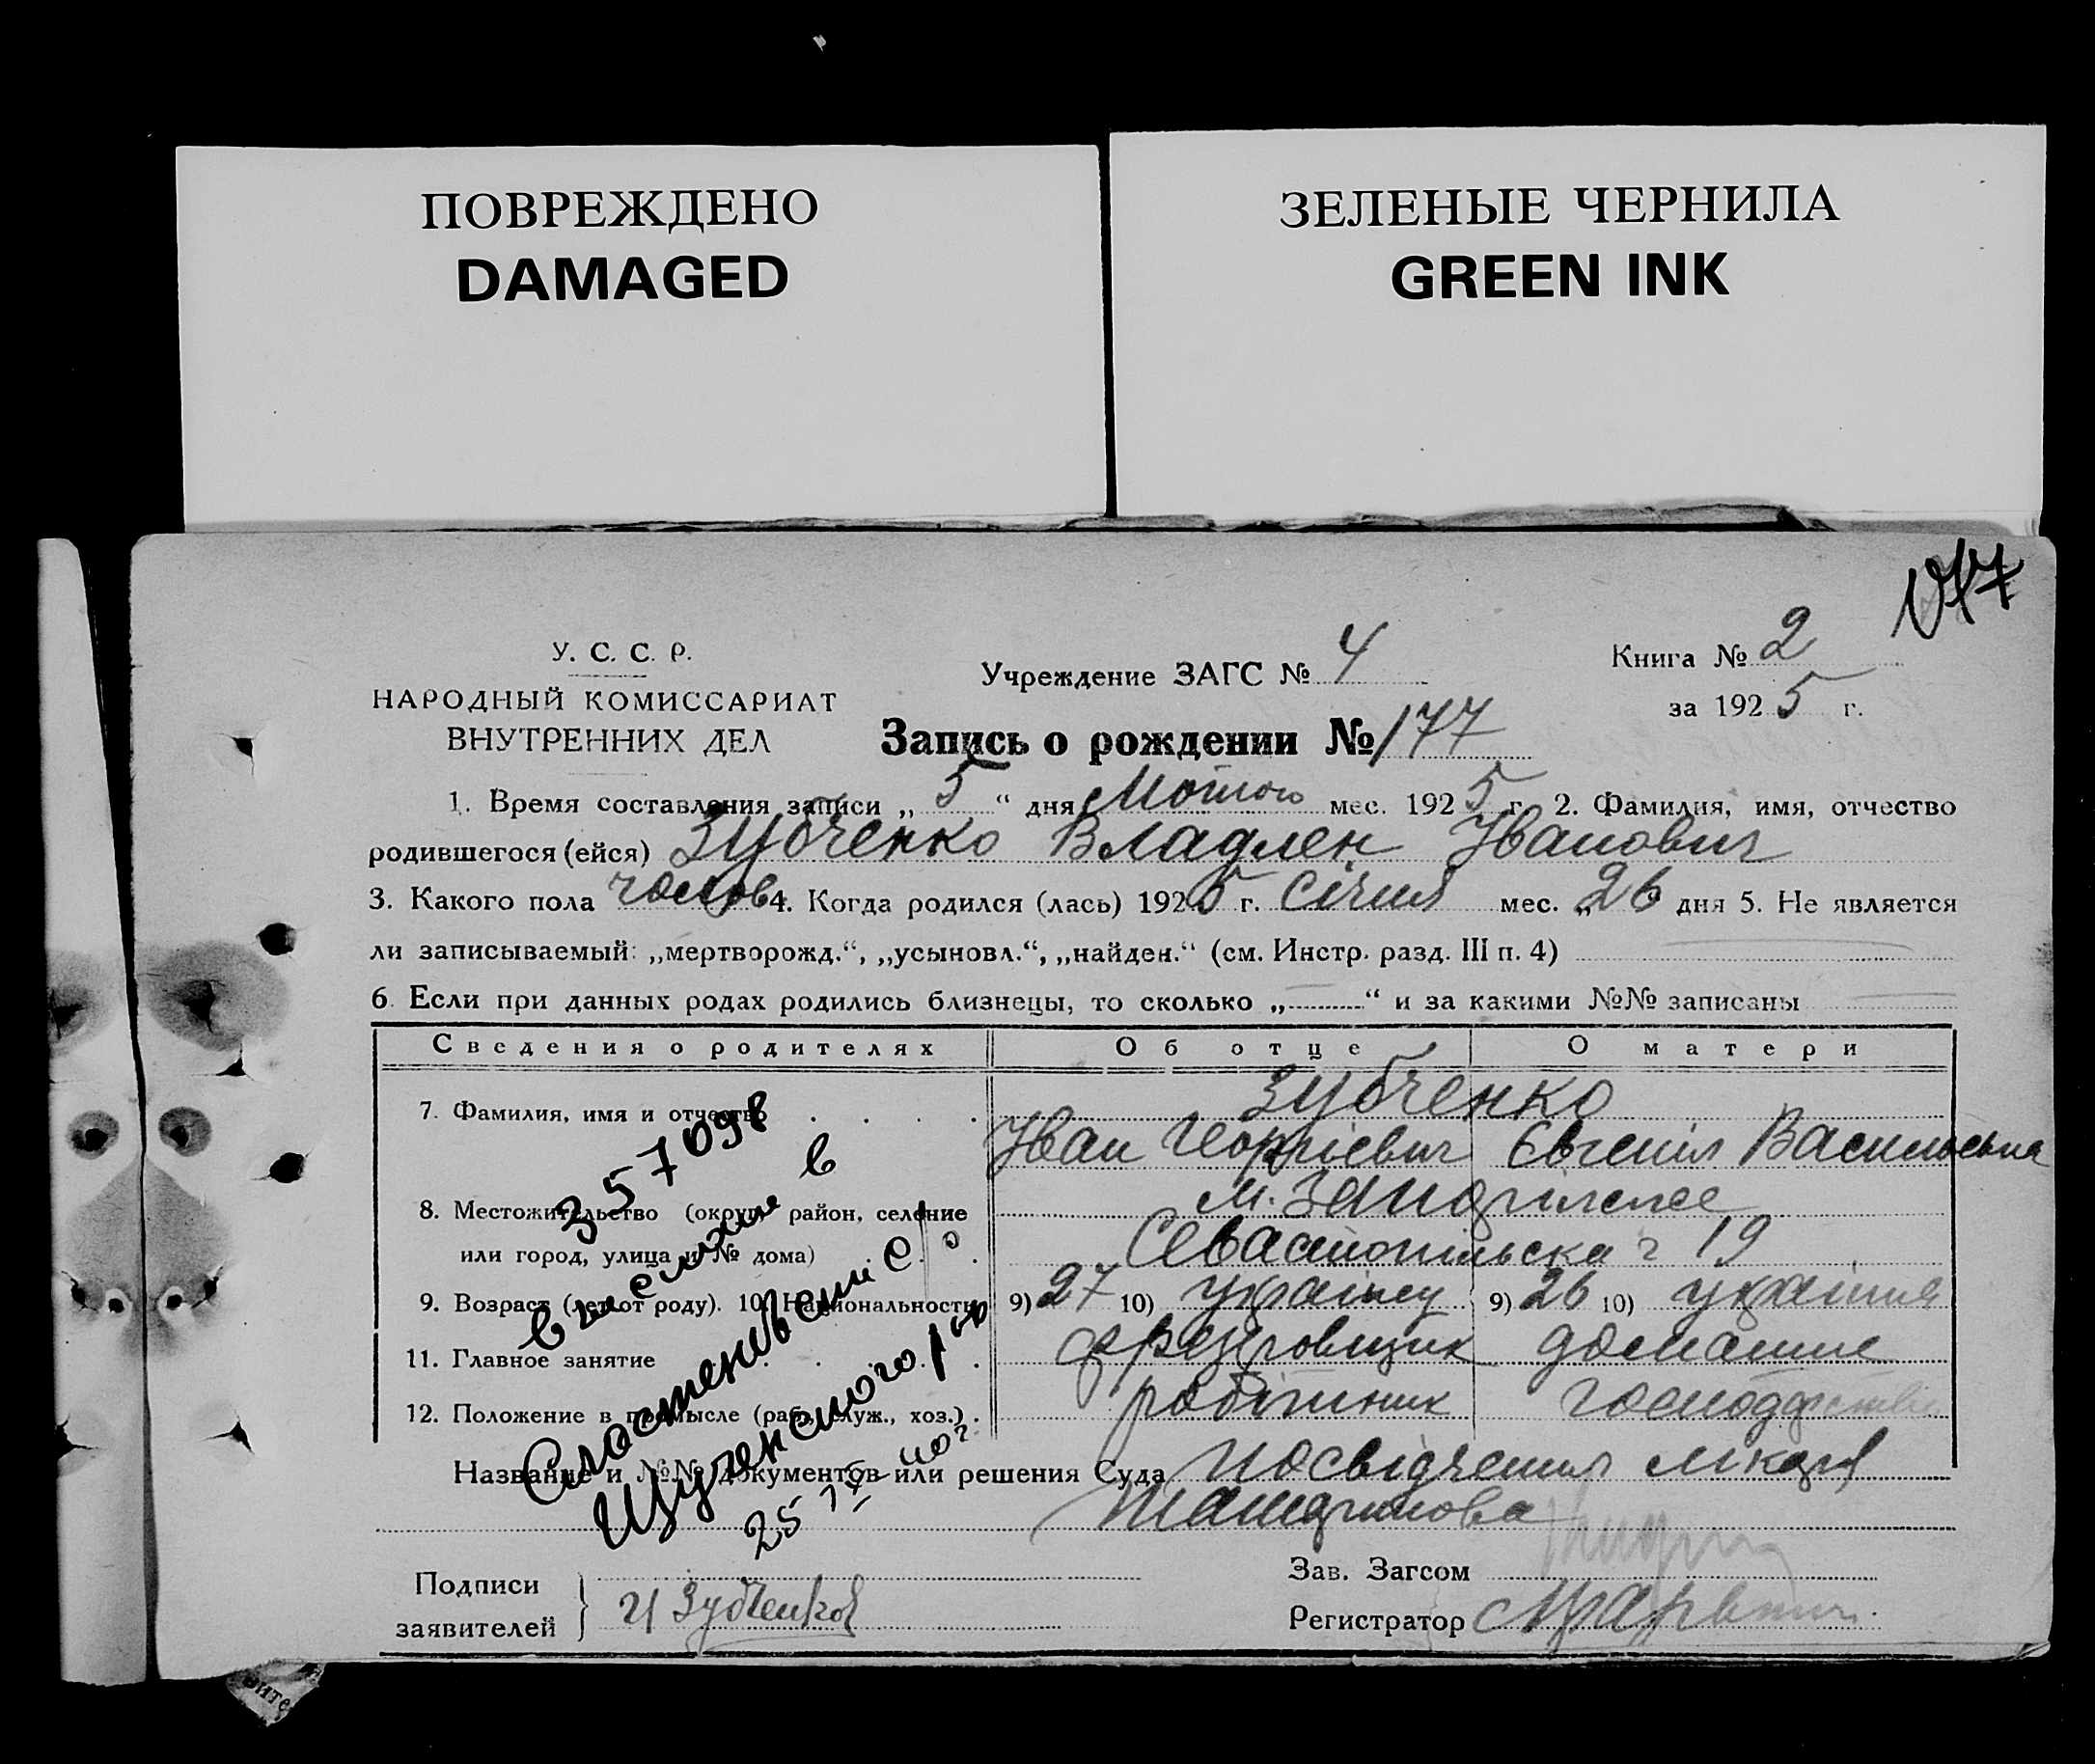 ПОВРЕЖДЕНО
DAMAGED
ЗЕЛЕНЫЕ ЧЕРНИЛА
GREEN INK
177
У. С. С. Р.
НАРОДНЫЙ КОМИССАРИАТ
ВНУТРЕННИХ ДЕЛ
Учреждение ЗАГС № 4
Книга № 2
за 1925 г.
Запись о рождении № 177
1. Время составления записи „ 5 “ дня Лютого мес. 1925 г. 2. Фамилия, имя, отчество
родившегося (ейся) Зубченко Владлен Іванович
3. Какого пола чолов 4. Когда родился (лась) 1925 г. Січня мес. „ 26 дня 5. Не является
ли записываемый: „мертворожд.“, „усыновл.“, „найден.“ (см. Инстр. разд. III п. 4)
6. Если при данных родах родились близнецы, то сколько „ “ и за какими №№ записаны
Сведения о родителях Об отце О матери
7. Фамилия, имя и отчество Зубченко
Іван Георгієвич Євгенія Васильевна
8. Местожительство (округ, район, селение м.
или город, улица и № дома) Севастопільска 19
9. Возраст (лет от роду). 10. Национальность 9) 27 10) 9) 26 10)
11. Главное занятие домашнє
12. Положение в промысле (раб., служ., хоз.) робітник
Название и №№ документов или решения Суда посвідчення лікаря
357098
в
25
Подписи
заявителей И Зубченко
Зав. Загсом
Регистратор